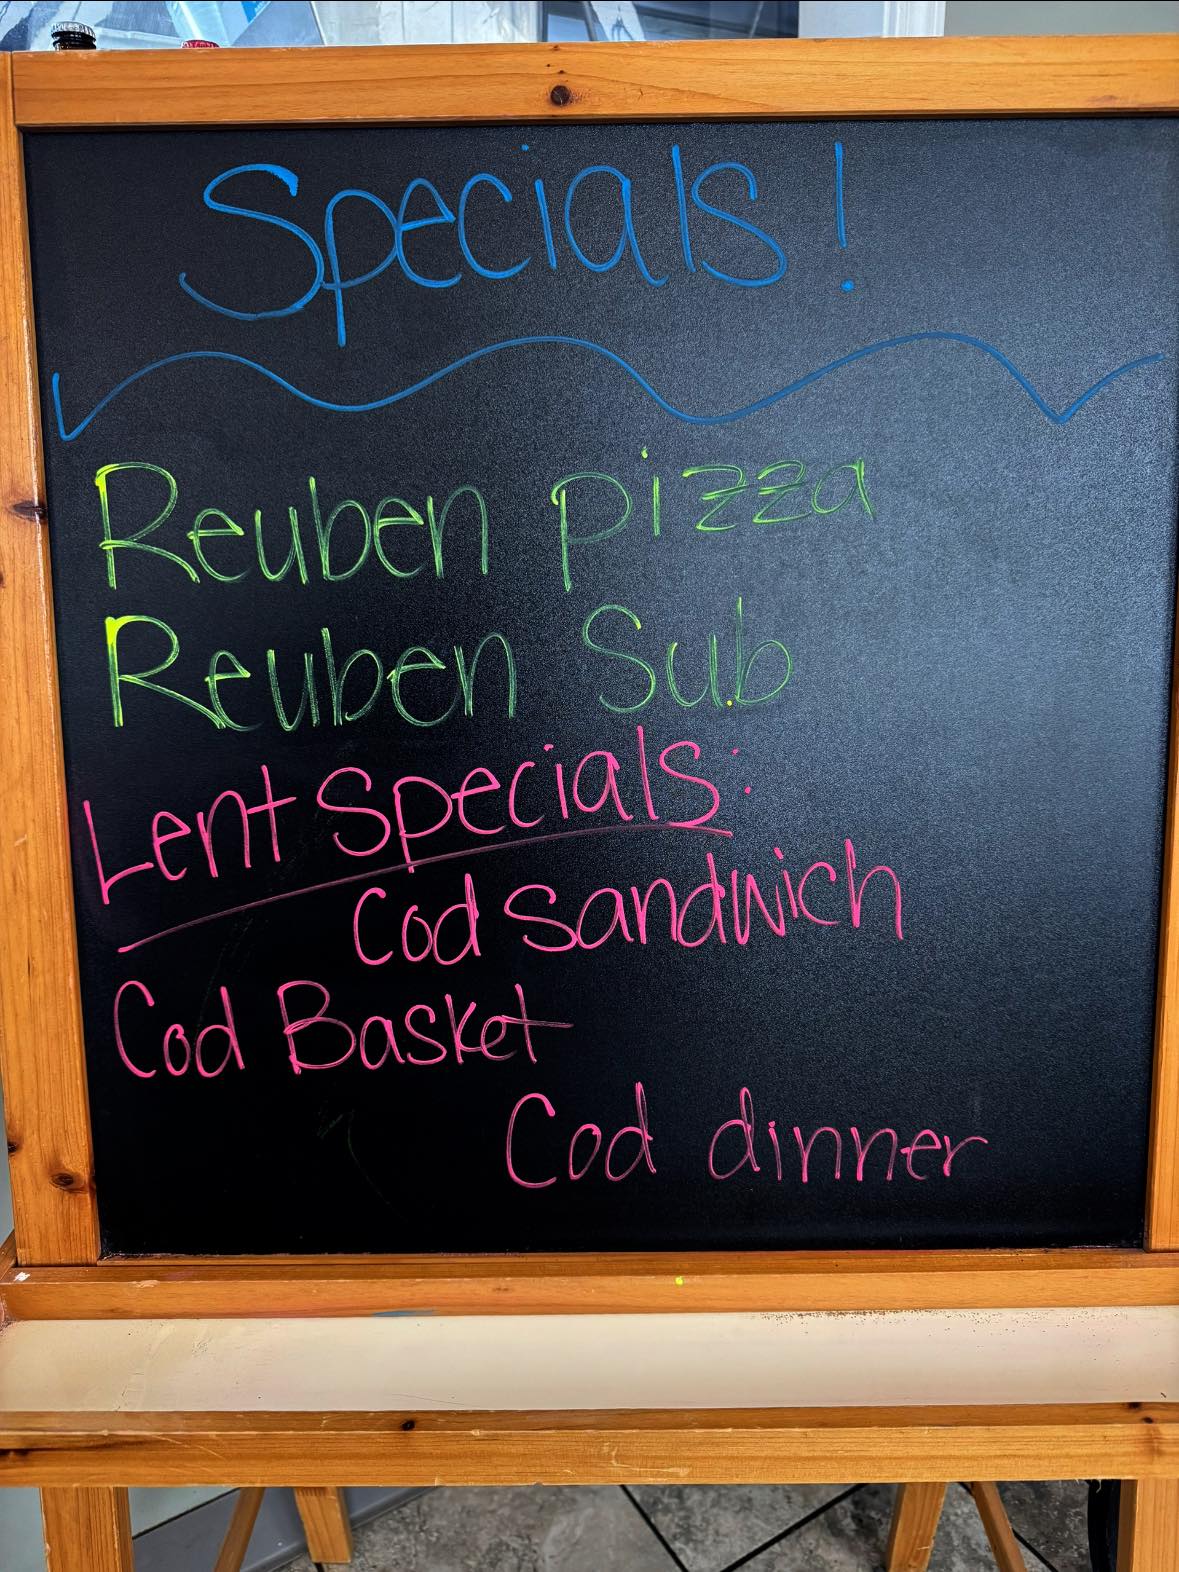 Specials!
Reuben pizza
Reuben Sub
Lent Specials:
Cod Sandwich
Cod Basket
Cod dinner